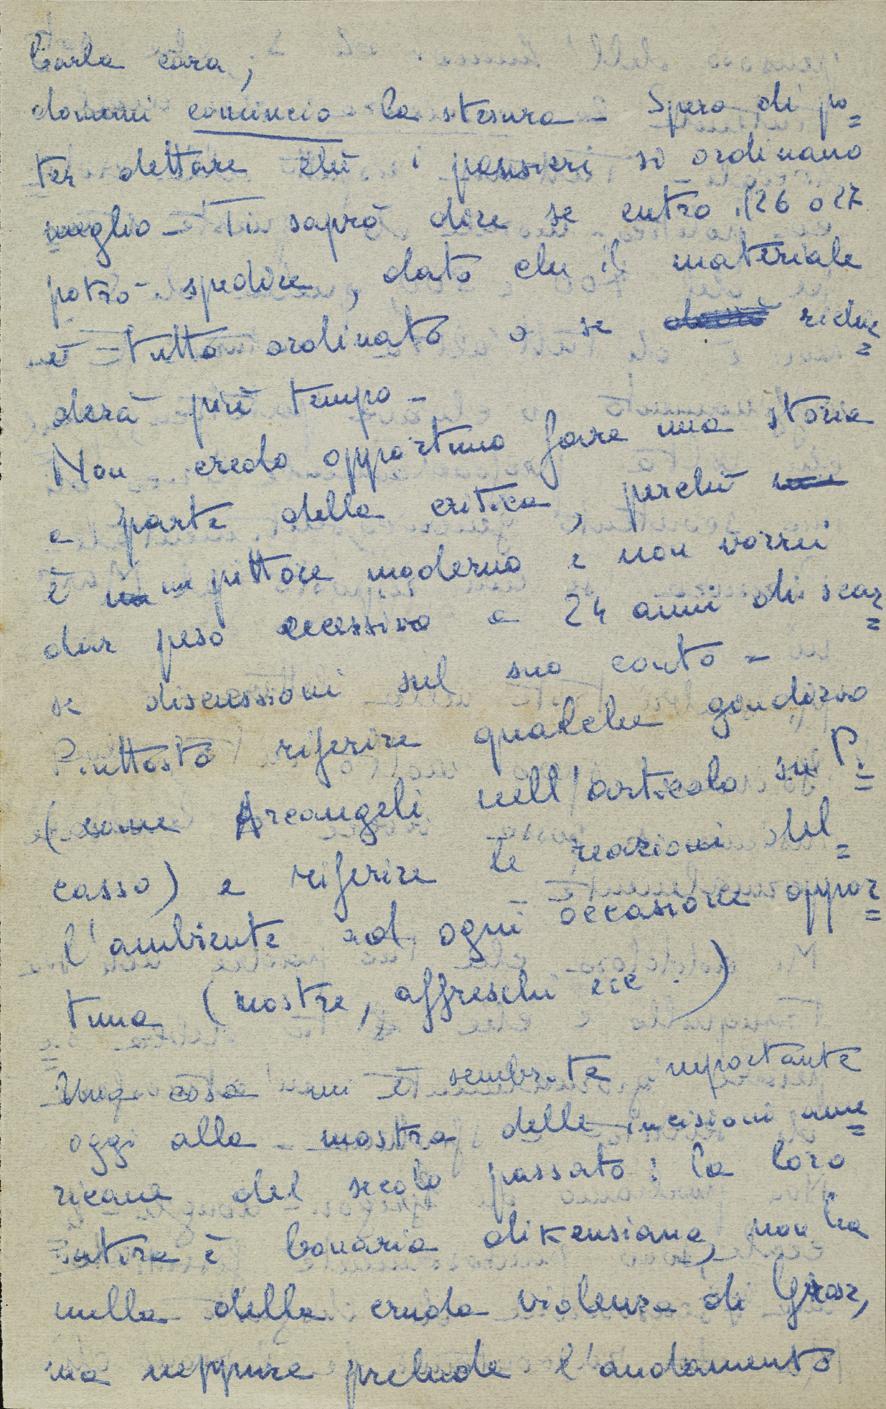 Carla cara,
domani comincio la stesura - Spero di po=
ter dettare chè i pensieri si ordinano
meglio - Ti saprò dire se entro il 26 o 27
potrò spedire, dato che il materiale
è tutto ordinato o se dovrò richie=
derà più tempo -
Non credo opportuno fare una storia
a parte della critica, perchè
è un pittore moderno e non vorrei
dar peso eccessivo a 24 anni di scar=
se discussioni sul suo conto =
Piuttosto riferire qualche giudizio
(come Arcangeli nell'articolo su Pi=
casso) e riferire le reazioni del=
l'ambiente ad ogni occasione oppor=
tuna (mostre, affreschi ecc.)
Una cosa mi è sembrata importante
oggi alla mostra delle incisioni ame=
ricane del secolo passato: la loro
satira è bonaria dikensiana, non ha
nulla della cruda violenza di Grosz,
ma neppure prelude l'andamento